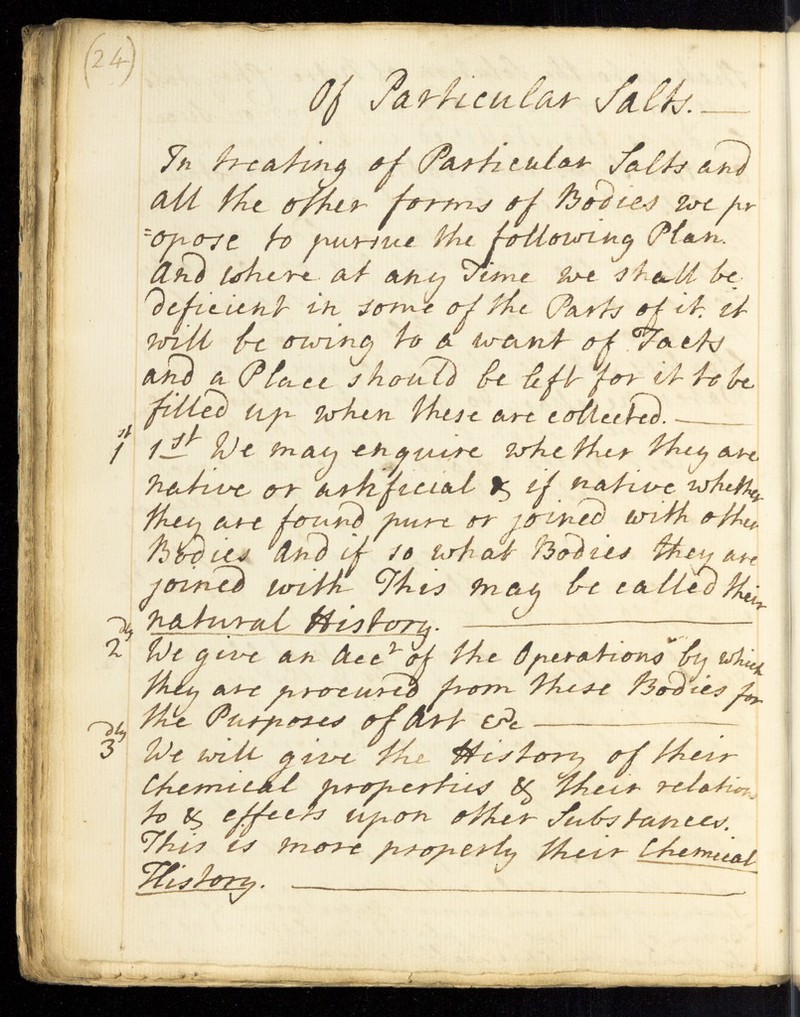 (24)
Of Particular Salts.
In treating of Particular Salts and
all the other forms of Bodies we pr
=opose to pursue the following Plan.
And where at any Time we shall be
deficient in some of the Parts of it. it
will be owing to a want of Facts
and a Place should be left for it to be
filled up when these are collected.
1st 1st We may enquire whether they are
native or artificial & if native whether
they are found pure or joined with other
Bodies And if so what Bodies they are
joined with This may be called their
natural History.
2dly We give an Accr of the Operations by which
they are procured from these Bodies for
the Purposes of Art &c
3dly We will give the History of their
Chemical properties & their relations
to & effects upon other Substances.
This is more properly their Chemical
History.